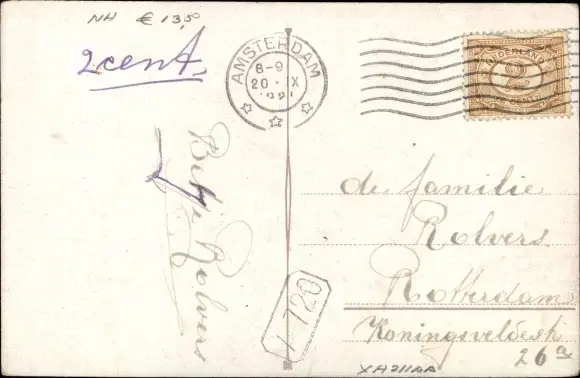 NH € 13,50
2cent
AMSTERDAM
8-9
20 IX
NEDERLAND
2
CENT
Betje Rolvers
de familie
Rolvers
Rotterdam
26a
T 720
XH211AA